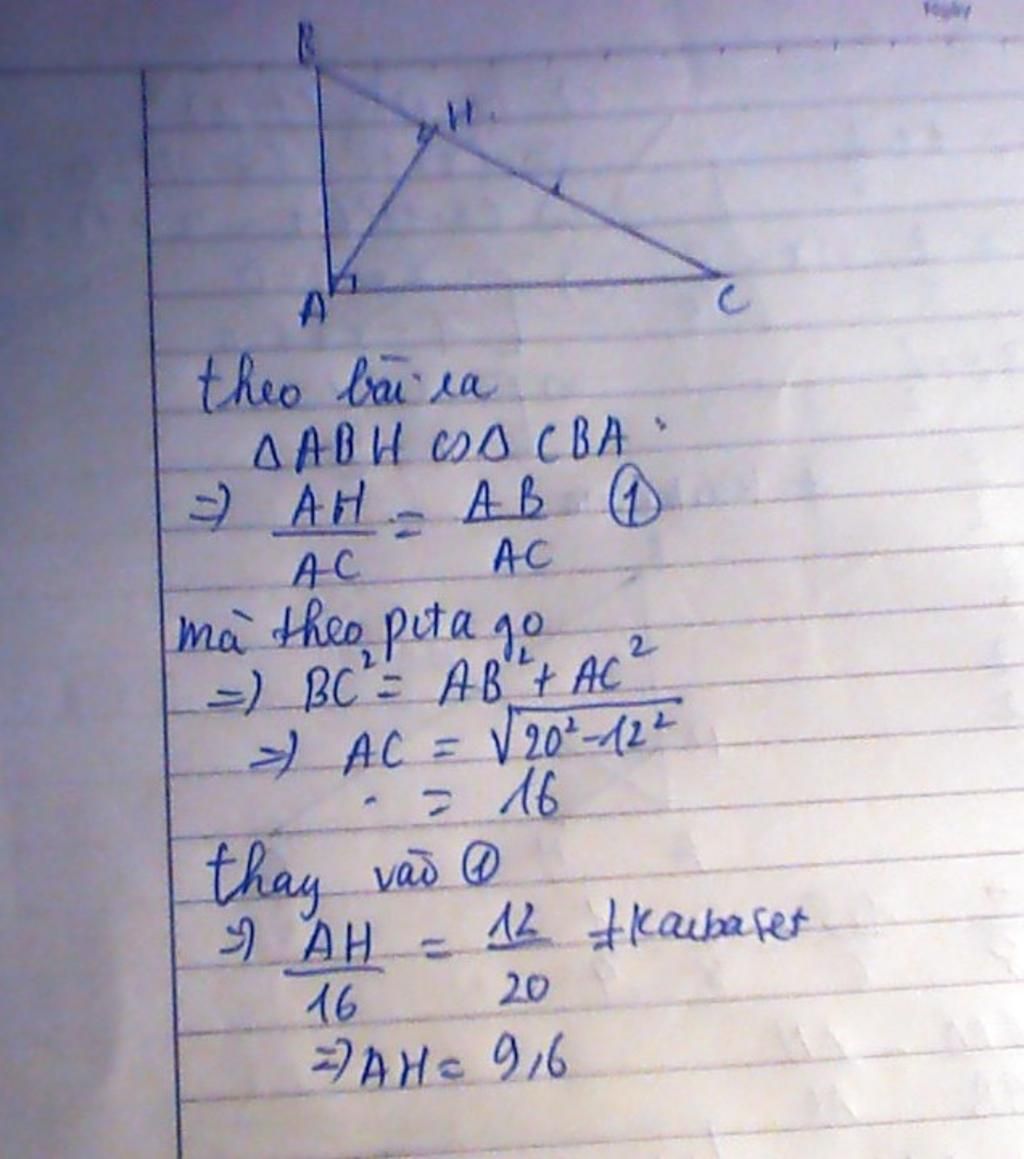 B
H
A
C
theo bài ra
Δ ABH ∽ Δ CBA
=> AH/AC = AB/AC ①
mà theo pitago
=> BC² = AB² + AC²
=> AC = √20²-12²
= 16
thay vào ①
=> AH/16 = 12/20
=> AH = 9,6